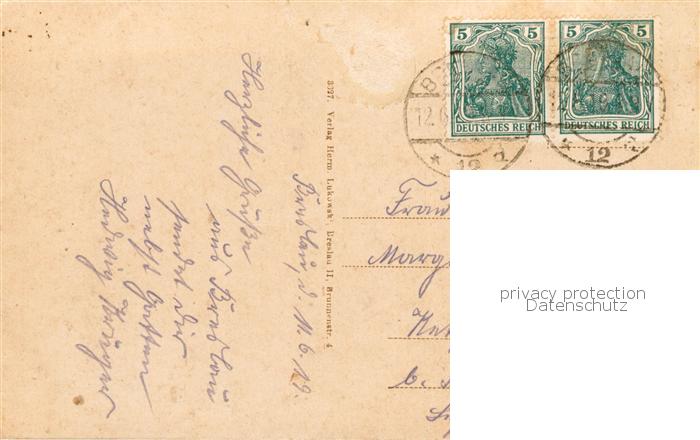 Breslau, d. 11. 6. 19.
Herzliche Grüße
aus Breslau
sendet Dir
nebst Gatten
Hedwig Krüger
3927 Verlag Herm. Lukowski, Breslau II, Brunnenstr. 4
5 5
DEUTSCHES REICH
5 5
DEUTSCHES REICH
B
12.6
* 12 d
* 12 d
Frau
Marg
b.
privacy protection
Datenschutz